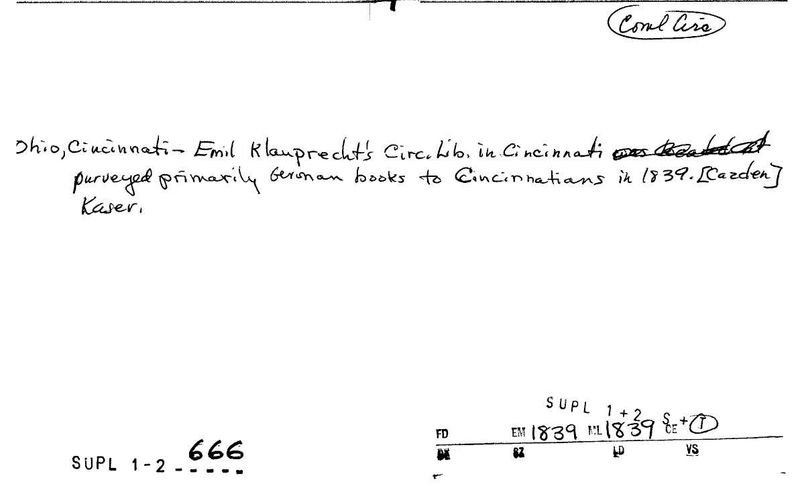 Coml Circ
Ohio, Cincinnati - Emil Klauprecht's Circ. Lib. in Cincinnati
purveyed primarily German books to Cincinnatians in 1839. [Carden]
Kaser.
SUPL 1+2
FD EM 1839 ML 1839 S CE + T
SZ LD VS
SUPL 1-2 - 666